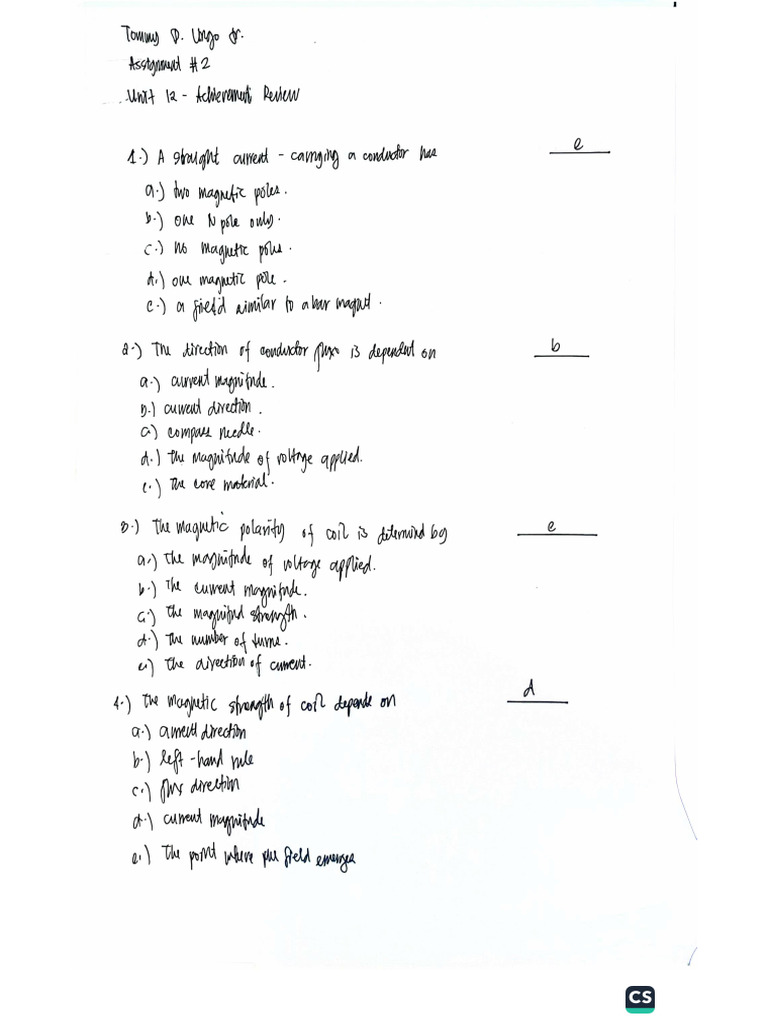 Tommy D. Urgo Jr.
Assignment #2
Unit 12 - Achievement Review
1.) A straight current - carrying a conductor has e
a.) two magnetic poles.
b.) one N pole only.
c.) no magnetic poles.
d.) one magnetic pole.
e.) a field similar to a bar magnet.
2.) The direction of conductor flux is dependent on b
a.) current magnitude.
b.) current direction.
c.) compass needle.
d.) the magnitude of voltage applied.
e.) The core material.
3.) The magnetic polarity of coil is determined by e
a.) the magnitude of voltage applied.
b.) The current magnitude.
c.) the magnitud strength.
d.) The number of turns.
e.) the direction of current.
4.) The magnetic strength of coil depends on d
a.) current direction
b.) left-hand rule
c.) flux direction
d.) current magnitude
e.) The point where the field emerges
CS